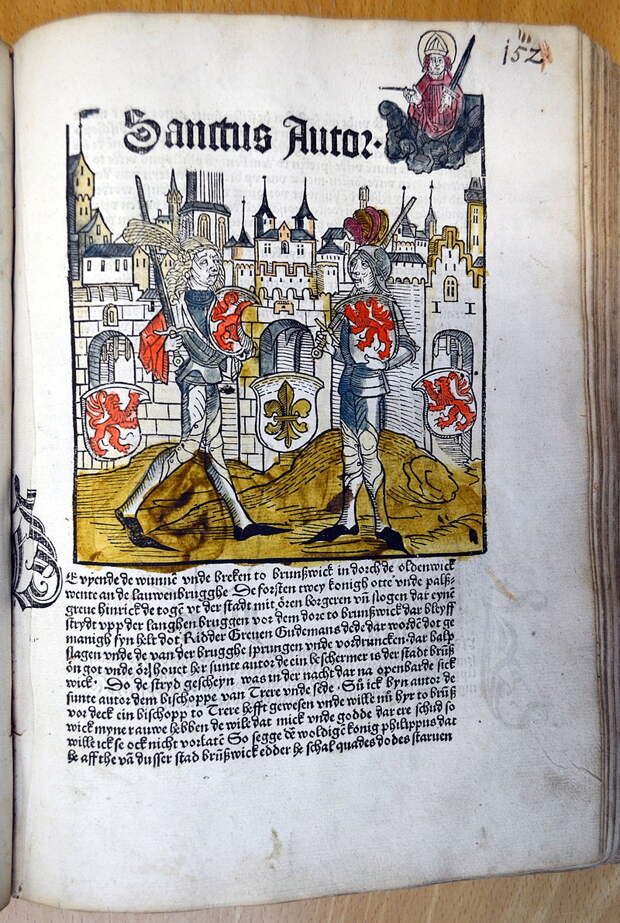 152
Sanctus Autor.
DE vyende de wunnē vnde breken to brunßwick in dorch de oldenwick
wente an de lauwenbrugghe. De forsten twey konigh otte vnde palß⸗
greue hinrick de togē vt der stadt mit ören borgeren vñ slogen dar eynē
strydt vpp der langhen bruggen vor dem dore to brunßwick dar bleyff
manigh fyn helt dot Ridder Greuen Gudemans dede dar wordē dot ge
slagen vnde de van der brugghe sprungen vnde vordruncken. dar halp
ön got vnde örl houet her sunte autor de ein beschermer is der stadt brūß
wick. Do de stryd gescheyn was in der nacht dar na openbarde sick
sunte autor dem bischoppe van Trere vnde sede. Sü ick byn autor de
vor deck ein bischopp to Trere hefft gewesen vnde wille nū hyr to brūß
wick myne rauwe hebben de wile dat mick vnde godde dar ere schid so
wille ick se ock nicht vorlatē So segge dē woldigē konig philippus dat
he aff the vā dusser stad brūßwick edder he schal quades dodes staruen